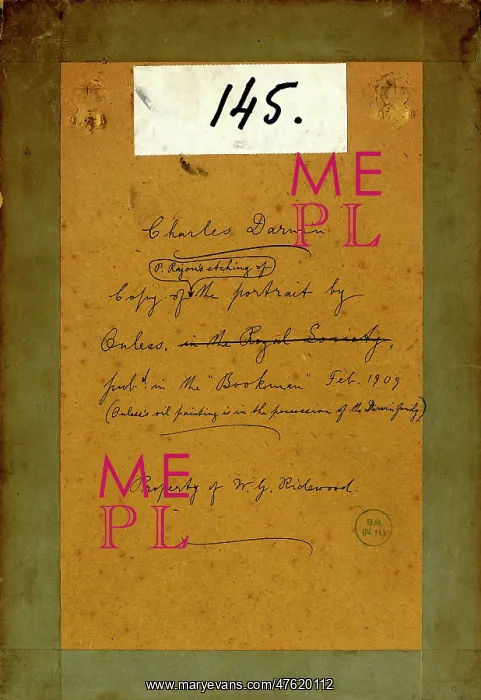 145.
ME
PL
Charles Darwin
P. Rajon's etching of
Copy of the portrait by
Ouless, in the Royal Society,
pubd. in the "Bookman" Feb. 1909
(Ouless's oil painting is in the possession of the Darwin family)
ME
PL
Property of W. G. Ridewood.
B.M.
(N. H.)
www.maryevans.com/47620112